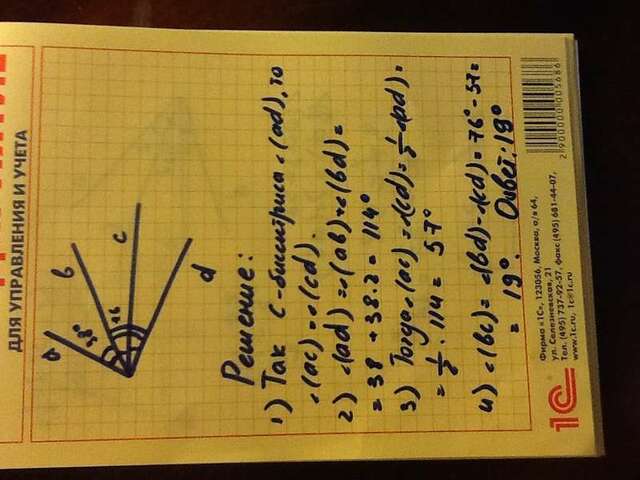 ДЛЯ УПРАВЛЕНИЯ И УЧЕТА
a
b
c
d
38°
76
Решение:
1) Так c-биссектриса ∠(ad), то
∠(ac) = ∠(cd).
2) ∠(ad) = ∠(ab) + ∠(bd) =
= 38 + 38·2 = 114°
3) Тогда ∠(ac) = ∠(cd) = 1/2 ∠(ad) =
= 1/2 · 114 = 57°
4) ∠(bc) = ∠(bd) - ∠(cd) = 76° - 57 =
= 19°. Ответ: 19°
1С
Фирма «1С», 123056, Москва, а/я 64,
ул. Селезневская, 21
Тел. (495) 737-92-57, факс (495) 681-44-07,
www.1c.ru, 1c@1c.ru
2 900000 005686